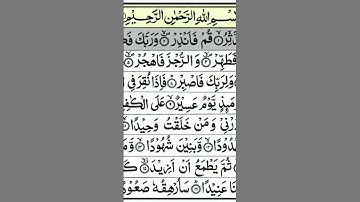 سْمِ اللّٰهِ الرَّحْمٰنِ الرَّحِيْمِ
ثِّرُ ۙ۝۱ قُمْ فَاَنْذِرْ ۙ۝۲ وَرَبَّكَ فَ
فَطَهِّرْ ۙ۝۴ وَالرُّجْزَ فَاهْجُرْ ۙ۝۵
وَلِرَبِّكَ فَاصْبِرْ ؕ۝۷ فَاِذَا نُقِرَ فِی
مَىِٕذٍ يَّوْمٌ عَسِيْرٌ ۙ۝۹ عَلَى الْكٰفِ
رْنِیْ وَمَنْ خَلَقْتُ وَحِيْدًا ۙ۝۱۱
مْدُوْدًا ۙ۝۱۲ وَّبَنِيْنَ شُهُوْدًا ۙ۝۱۳
ثُمَّ يَطْمَعُ اَنْ اَزِيْدَ ۙ۝۱۵
نَا عَنِيْدًا ؕ۝۱۶ سَاُرْهِقُهٗ صَعُوْدً